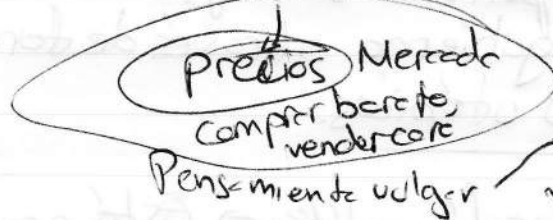 precios Mercado
comprar barato,
vender caro
Pensamiento vulgar